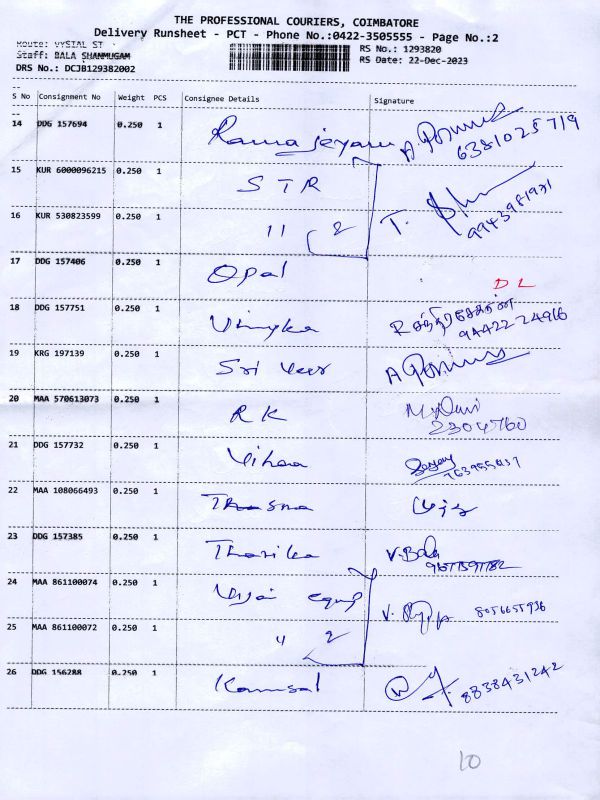 THE PROFESSIONAL COURIERS, COIMBATORE
Delivery Runsheet - PCT - Phone No.:0422-3505555 - Page No.:2
Route: VYSIAL ST RS No.: 1293820
Staff: BALA SHANMUGAM RS Date: 22-Dec-2023
DRS No.: DCJB129382002
S No Consignment No Weight PCS Consignee Details Signature
14 DDG 157694 0.250 1 Rama jeyam
6381025719
15 KUR 6000096215 0.250 1 STR
9943981931
16 KUR 530823599 0.250 1 11 2
17 DDG 157406 0.250 1 Opal DL
18 DDG 157751 0.250 1 R சந்திரசேகரன்
94422 24916
19 KRG 197139 0.250 1 Sri
20 MAA 570613073 0.250 1 RK
2304760
21 DDG 157732 0.250 1 Vihaa
22 MAA 108066493 0.250 1
23 DDG 157385 0.250 1 Tharika V. Bala
24 MAA 861100074 0.250 1 V. 8056655936
25 MAA 861100072 0.250 1 11 2
26 DDG 156288 0.250 1 8838431242
10